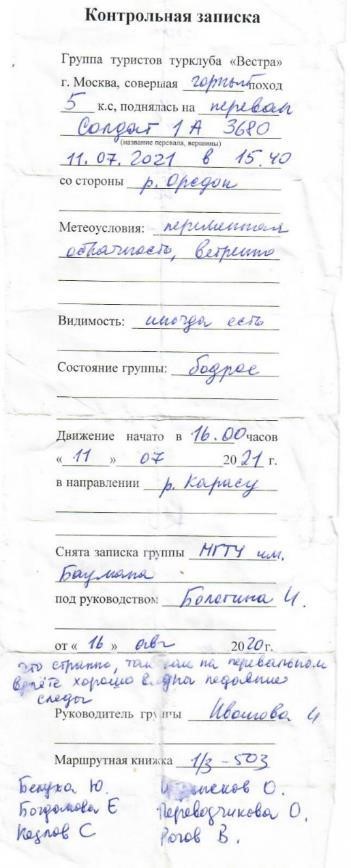 Контрольная записка
Группа туристов турклуба «Вестра»
г. Москва, совершая горный поход
5 к.с, поднялась на перевал
Солдат 1А 3680
(название перевала, вершины)
11.07.2021 в 15.40
со стороны р. Орсдон
Метеоусловия: переменная
облачность, ветрено
Видимость: иногда есть
Состояние группы: бодрое
Движение начато в 16.00 часов
« 11 » 07 2021 г.
в направлении р. Карасу
Снята записка группы МГТУ им.
Баумана
под руководством Бологина И.
от « 16 » авг 2020 г.
это странно, так как на перевальном
взлёте хорошо видны недавние
следы
Руководитель группы Иванова И
Маршрутная книжка 1/3-503
Бекуха Ю. О.
Богданова Е Перевозчикова О.
Козлов С Рогов В.